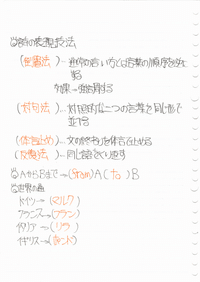 詩の表現技法
(倒置法)…通常の言い方とは言葉の順序を変える
効果→強調する
(対句法)…対照的な二つの言葉を同じ形で並べる
(体言止め)…文の終わりを体言で止める
(反復法)…同じ語をくり返す
AからBまで→(from)A(to)B
世界の
ドイツ→(マルク)
フランス→(フラン)
イタリア→(リラ)
イギリス→(ポンド)